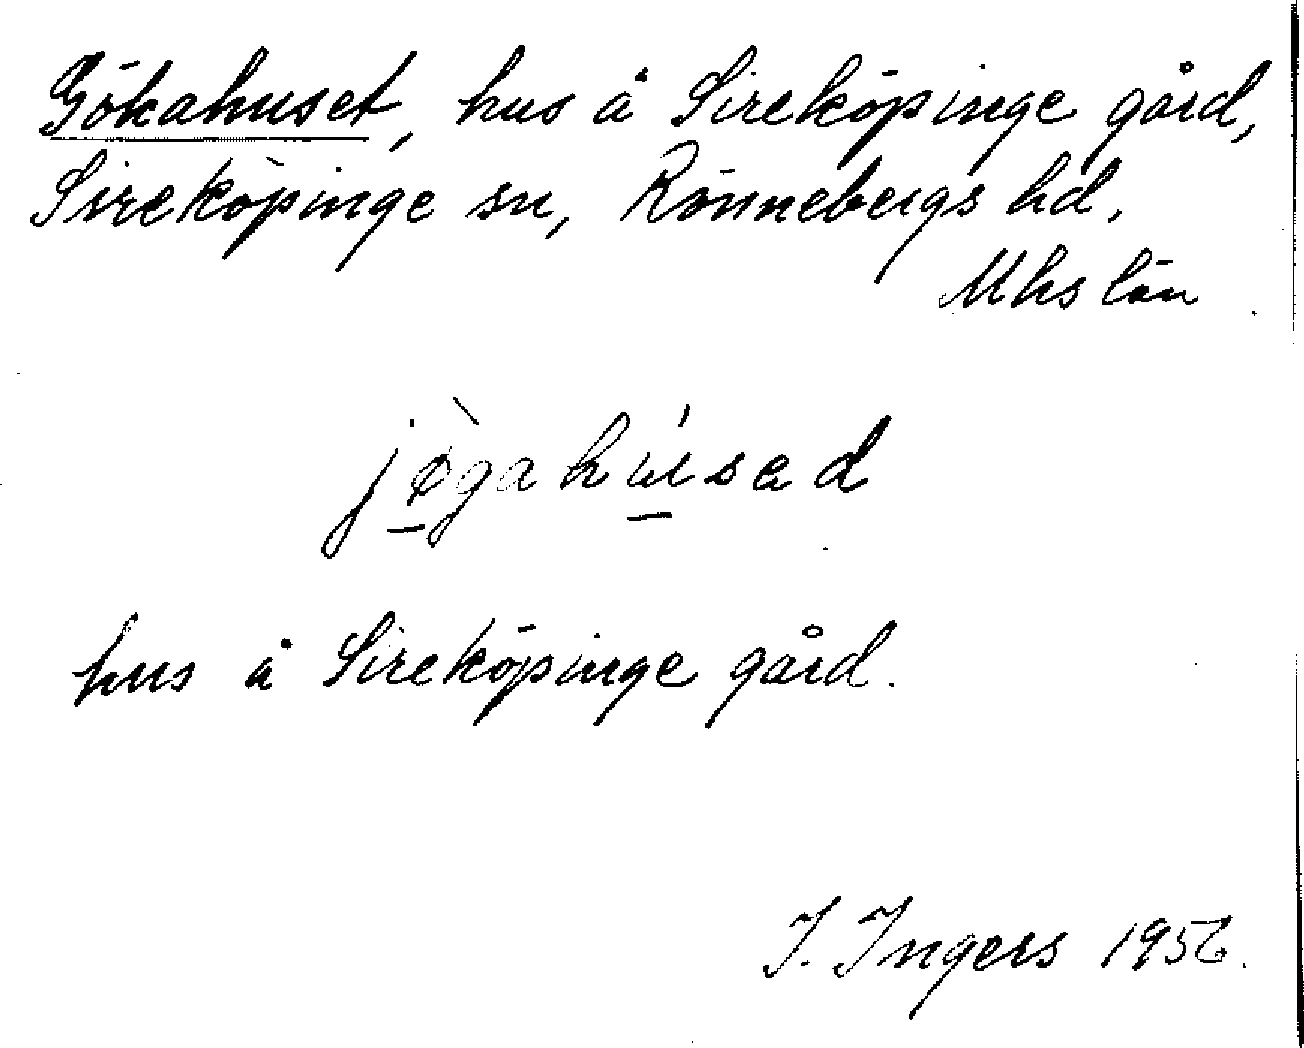 Gökahuset, hus å Sireköpinge gård,
Sireköpinge sn, Rönnebergs hd.
Mhs län
jø̠̀gahú̠sad
hus å Sireköpinge gård.
I. Ingers 1956.